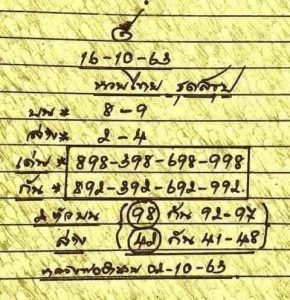 16-10-63
หวยไทย ชุดสรุป
บน * 8 - 9
ล่าง * 2 - 4
เด่น * 898-398-698-998
กัน * 892-392-692-992
2 ตัวบน (98) กัน 92-97
ล่าง (42) กัน 41-48
02-10-63